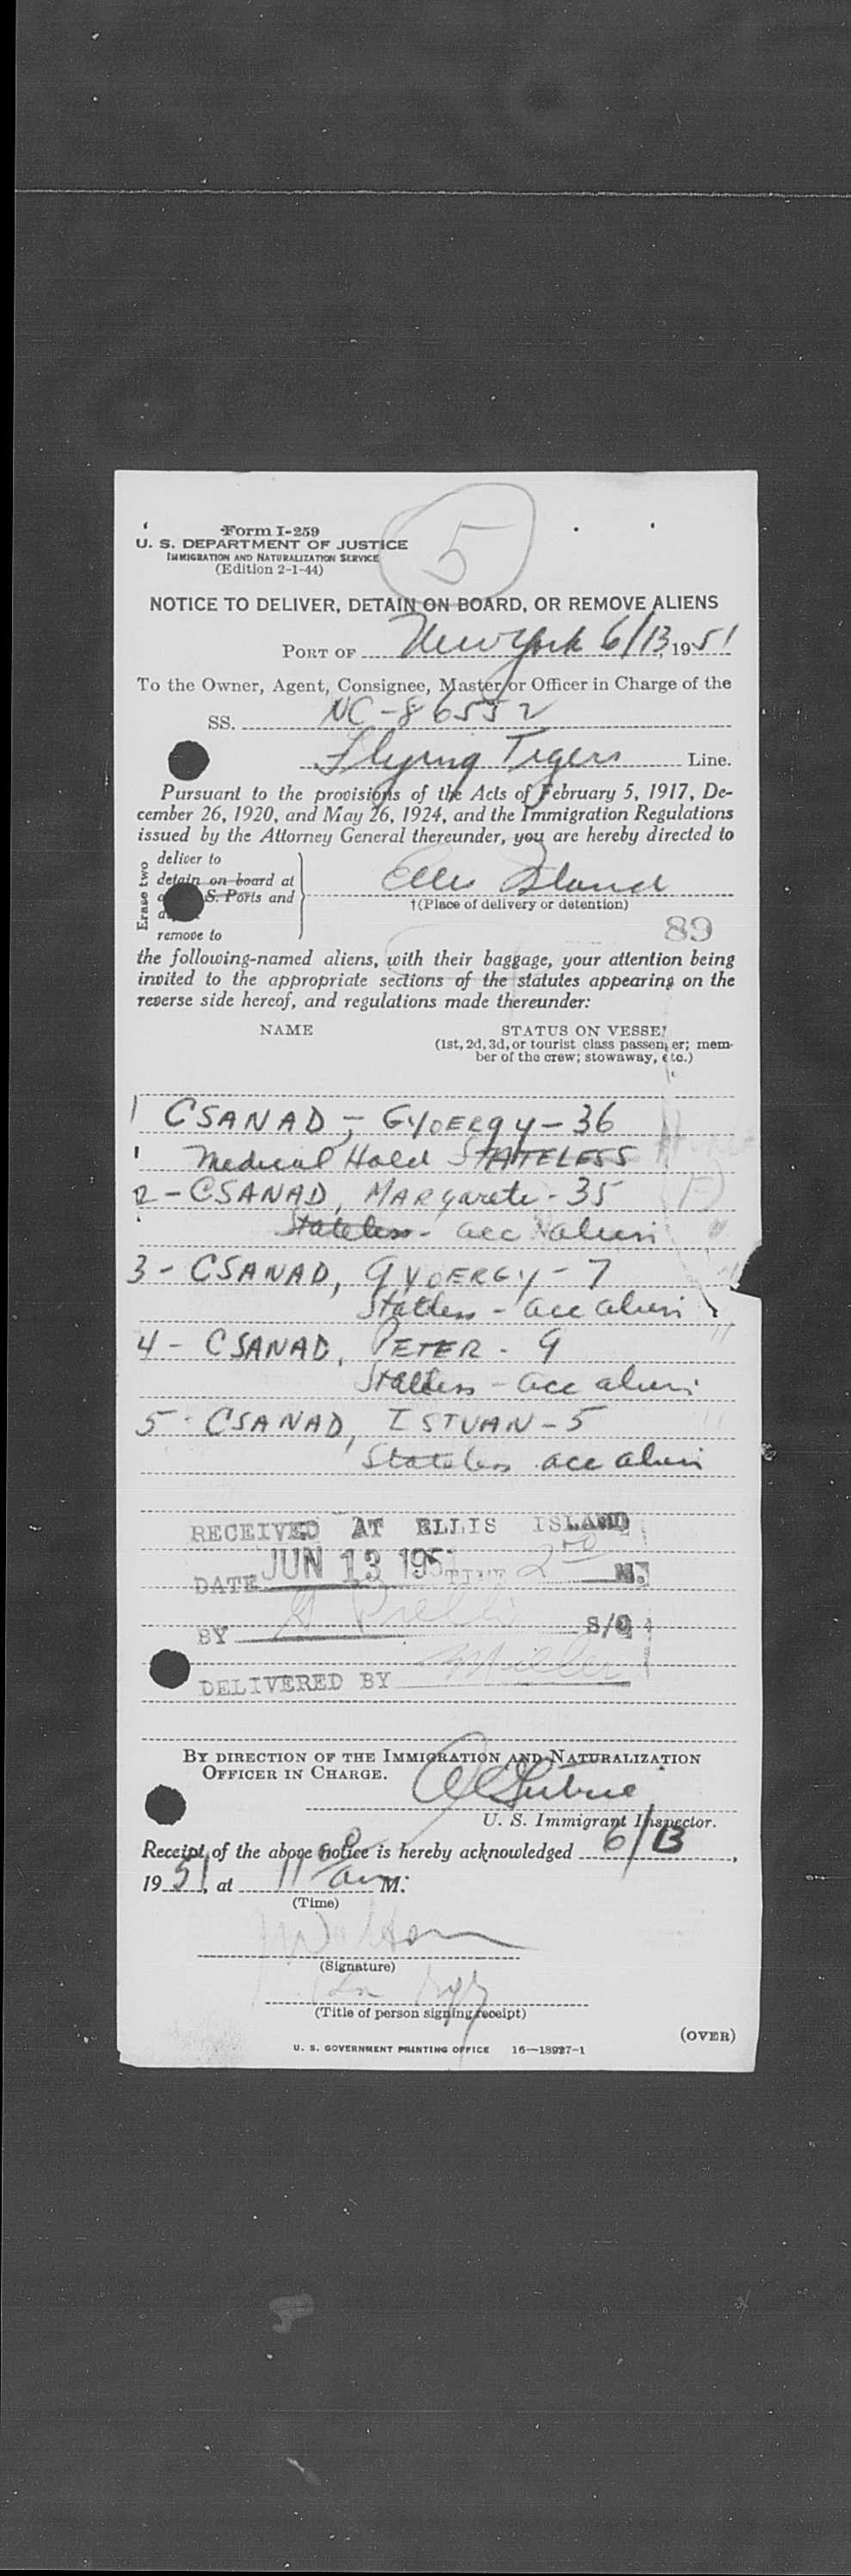 5
Form I-259
U. S. DEPARTMENT OF JUSTICE
IMMIGRATION AND NATURALIZATION SERVICE
(Edition 2-1-44)
NOTICE TO DELIVER, DETAIN ON BOARD, OR REMOVE ALIENS
PORT OF New York 6/13, 1951
To the Owner, Agent, Consignee, Master, or Officer in Charge of the
SS. NC-86552
Flying Tigers Line.
Pursuant to the provisions of the Acts of February 5, 1917, De-
cember 26, 1920, and May 26, 1924, and the Immigration Regulations
issued by the Attorney General thereunder, you are hereby directed to
Erase two
deliver to
detain on board at
S. Ports and
remove to
Ellis Island
†(Place of delivery or detention)
89
the following-named aliens, with their baggage, your attention being
invited to the appropriate sections of the statutes appearing on the
reverse side hereof, and regulations made thereunder:
NAME STATUS ON VESSEL
(1st, 2d, 3d, or tourist class passenger; mem-
ber of the crew; stowaway, etc.)
1 CSANAD, - GYOERGY - 36
1 Medical Hold STATELESS
2 - CSANAD, MARGARETE - 35
Stateless - acc alien
3 - CSANAD, GYOERGY - 7
Stateless - acc alien
4 - CSANAD, PETER - 9
Stateless - acc alien
5 - CSANAD, ISTVAN - 5
Stateless acc alien
RECEIVED AT ELLIS ISLAND
DATE JUN 13 1951 TIME 2 00 M.
BY S/O
DELIVERED BY Miller
BY DIRECTION OF THE IMMIGRATION AND NATURALIZATION
OFFICER IN CHARGE.
U. S. Immigrant Inspector.
Receipt of the above notice is hereby acknowledged 6/13,
1951, at 11 am M.
(Time)
(Signature)
(Title of person signing receipt)
(OVER)
U. S. GOVERNMENT PRINTING OFFICE 16—18927-1